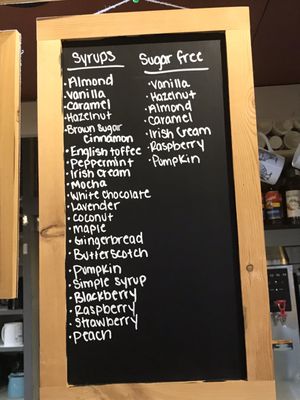 Syrups
• Almond
• Vanilla
• Caramel
• Hazelnut
• Brown Sugar
cinnamon
• English toffee
• Peppermint
• Irish Cream
• Mocha
• White Chocolate
• Lavender
• Coconut
• Maple
• Gingerbread
• Butterscotch
• Pumpkin
• Simple Syrup
• Blackberry
• Raspberry
• Strawberry
• Peach
Sugar free
• Vanilla
• Hazelnut
• Almond
• Caramel
• Irish Cream
• Raspberry
• Pumpkin